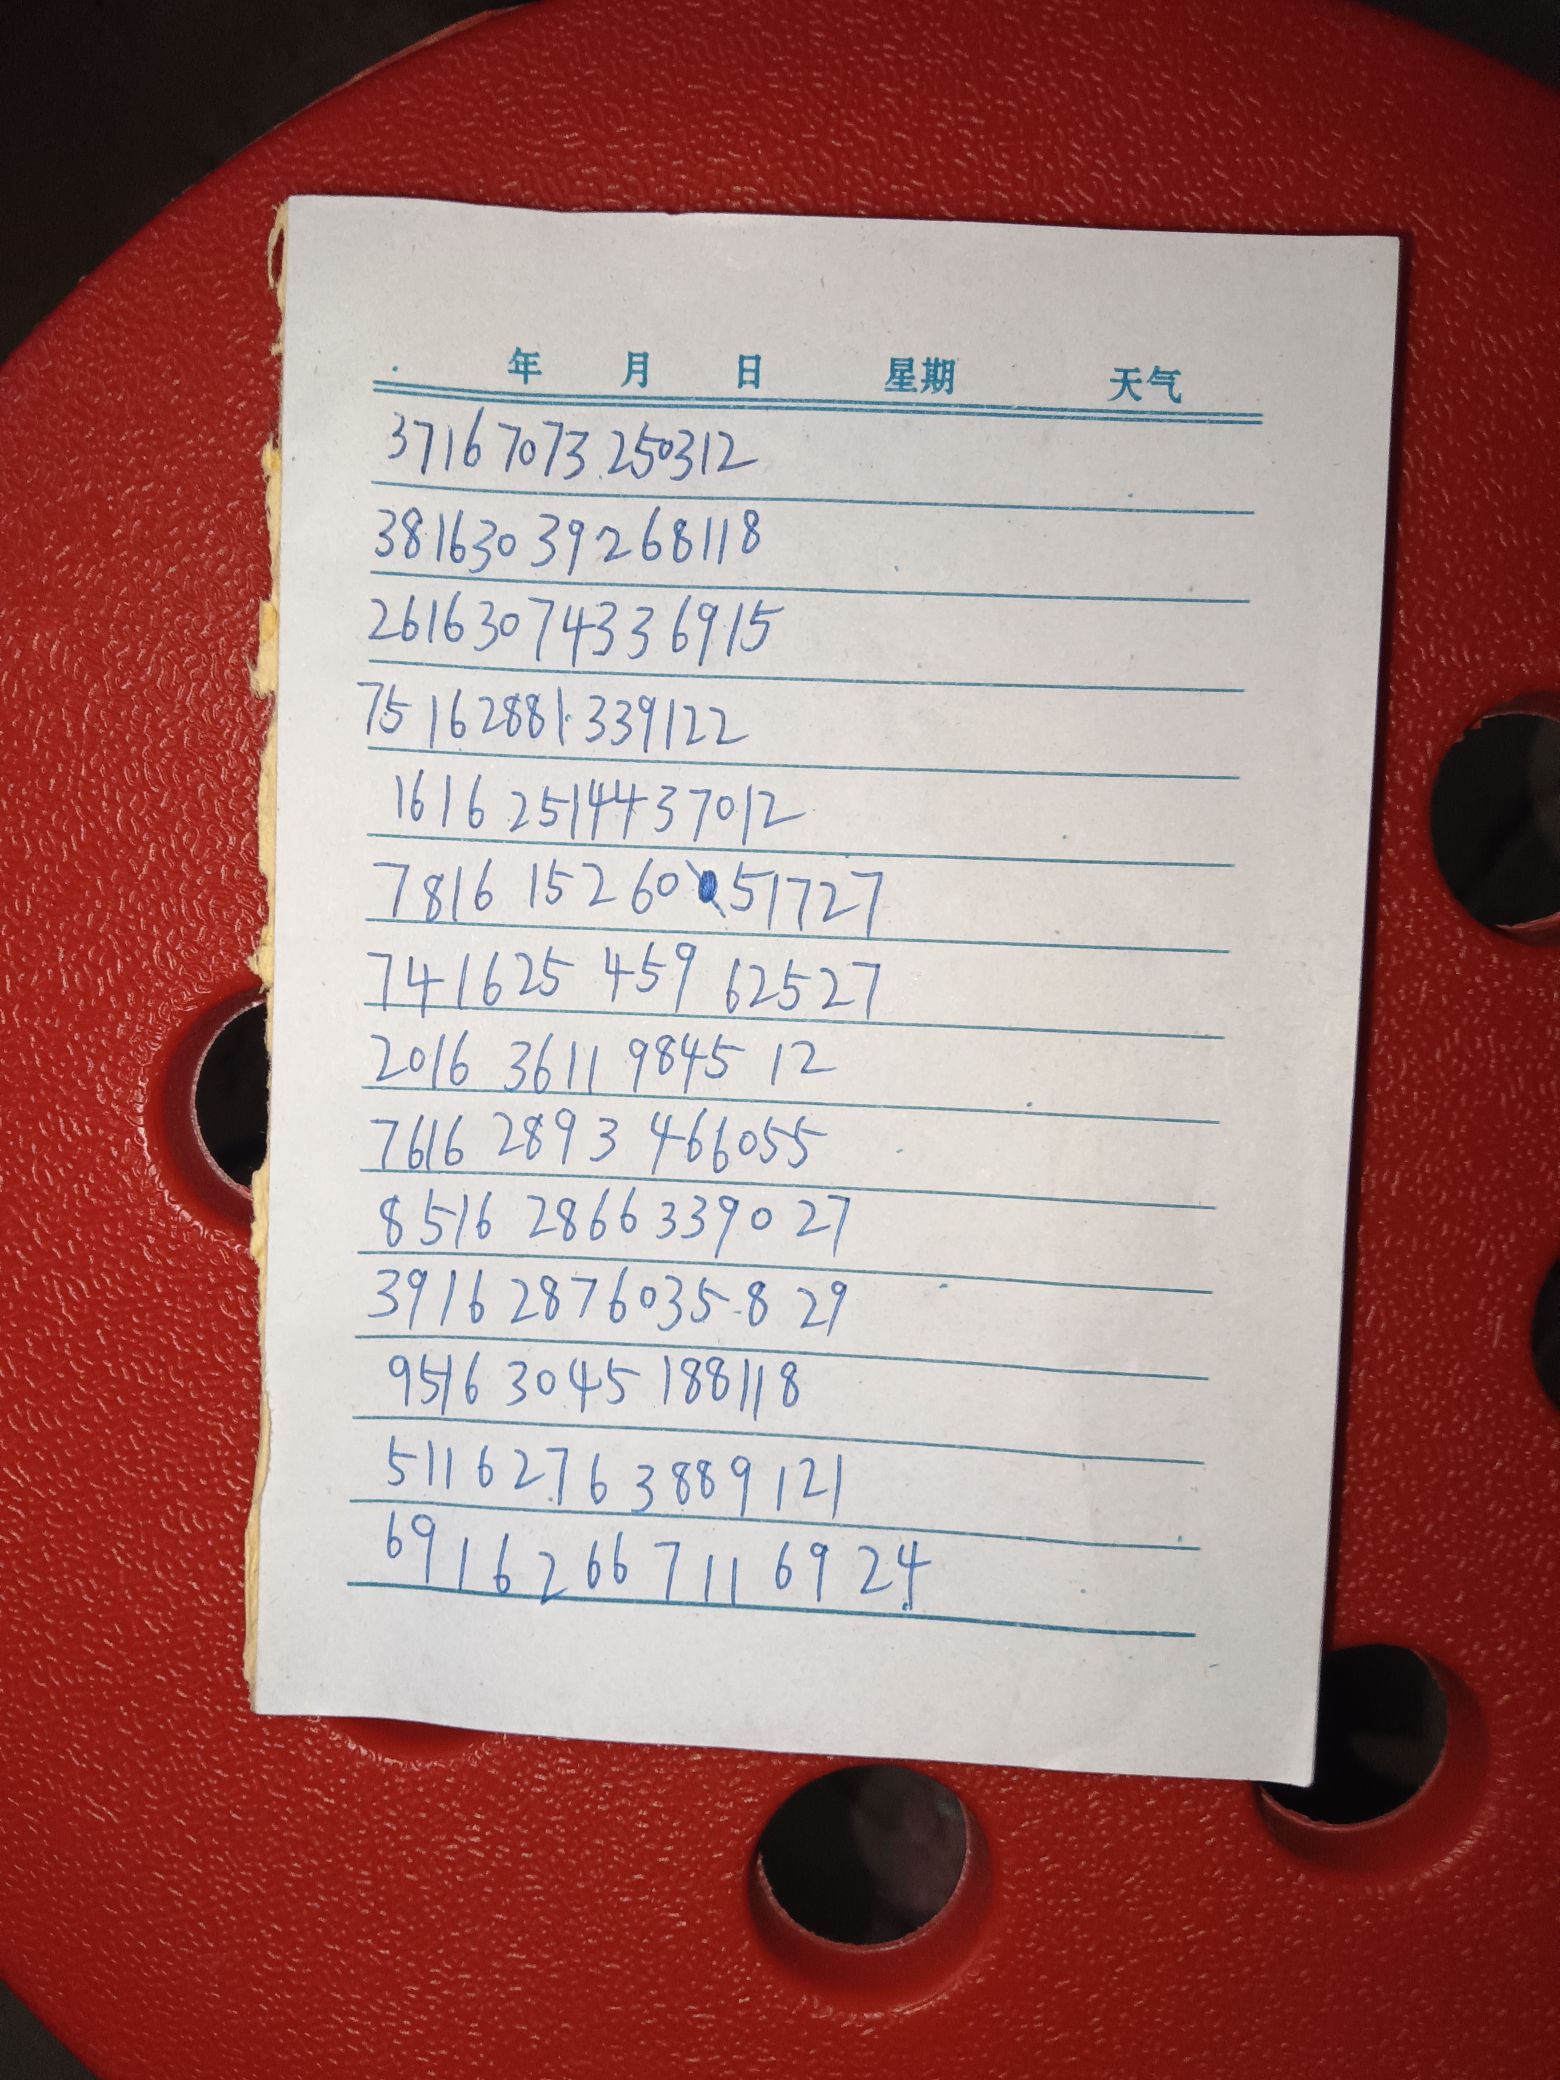 年 月 日 星期 天气
37167073250312
38163039268118
26163074336915
75162881339122
16162514437012
7816 15260 51727
741625 459 62527
2016 3611 9845 12
7616 2893 466055
8516 2866339027
39162876035829
9516 3045 188118
51162763889121
69162667116924